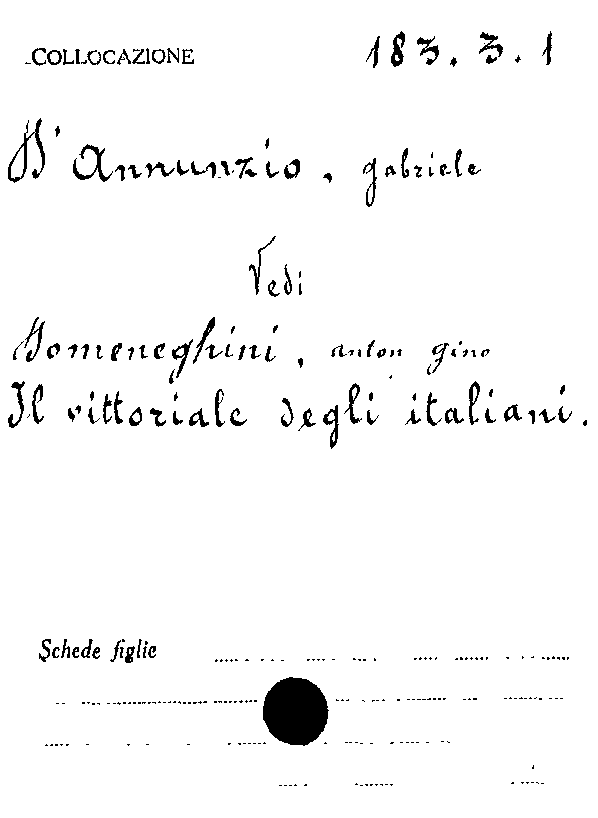 COLLOCAZIONE 183.3.1
D'Annunzio, gabriele
Vedi
Domeneghini, anton gino
Il vittoriale degli italiani.
Schede figlie